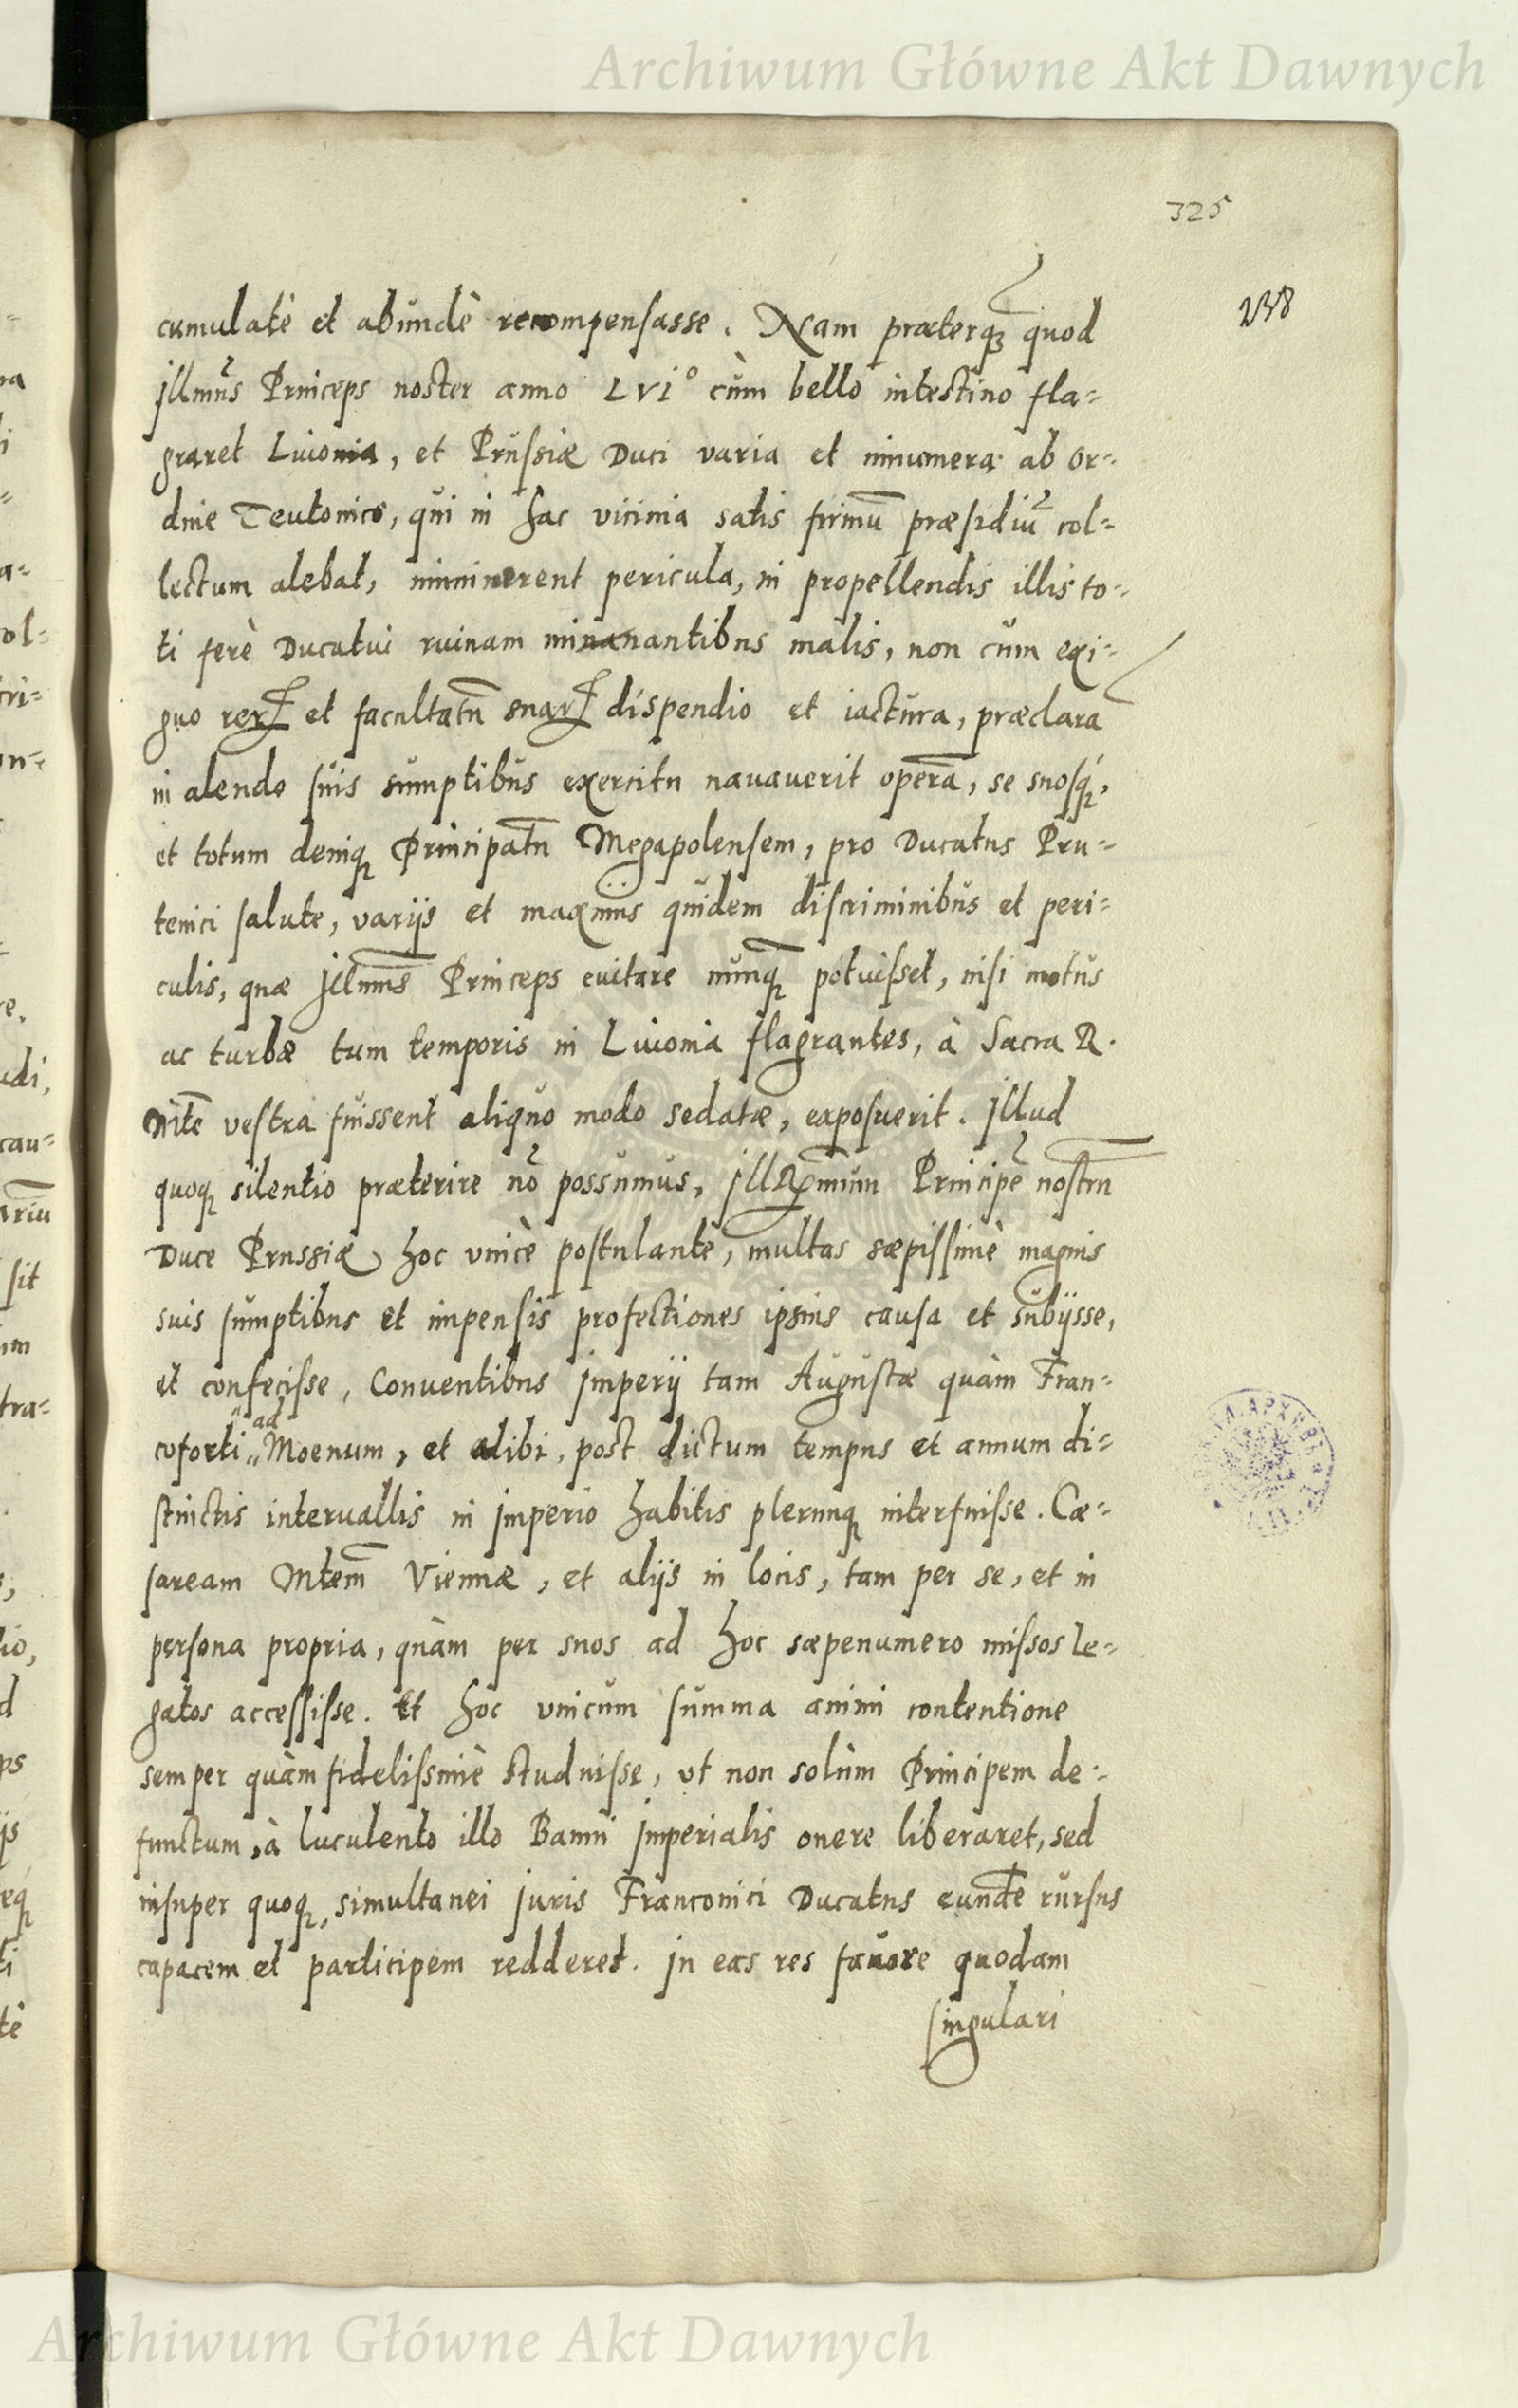 Archiwum Główne Akt Dawnych
325
238
cumulatè et abundè recompensasse. Nam præterqꝫ quod
Jllmus Princeps noster anno LVI° cùm bello intestino fla=
graret Liuonia, et Prussiæ Duci varia et innumera ab Or=
dine Teutonico, qui in hac vicinia satis firmũ præsidiũ col=
lectum alebat, imminerent pericula, in propellendis illis to=
ti ferè Ducatui ruinam minanantibus malis, non cum exi=
guo rerꝝ et facultatũ suarꝝ dispendio et iactura, præclara
in alendo suis sumptibus exercitu nauauerit operã, se suosqꝫ,
et totum deniqꝫ Principatũ Megapolensem, pro Ducatus Pru=
tenici salute, varijs et maximis quidem discriminibus et peri=
culis, quæ Jllmus Princeps euitare nunqꝫ potuisset, nisi motus
ac turbæ tum temporis in Liuonia flagrantes, à Sacra R.
Mte vestra fuissent aliquo modo sedatæ, exposuerit. Jllud
quoqꝫ silentio præterire nõ possumus, JllRmum Principẽ nostrũ
Duce Prussiæ hoc vnicè postulante, multas sæpissimè magnis
suis sumptibus et impensis profectiones ipsius causa et subijsse,
et confecisse, Conuentibus Jmperij tam Augustæ quàm Fran=
coforti ad Moenum, et alibi, post dictum tempus et annum di=
stinctis interuallis in Jmperio habitis plerunqꝫ interfuisse. Cæ=
saream Mtem Viennæ, et alijs in locis, tam per se, et in
persona propria, quàm per suos ad hoc sæpenumero missos le=
gatos accessisse. Et hoc vnicum summa animi contentione
semper quàm fidelissimè studuisse, vt non solùm Principem de=
functum, à luculento illo Banni Jmperialis onere liberaret, sed
insuper quoqꝫ, simultanei Juris Franconici Ducatus eundẽ rursus
capacem et participem redderet. Jn eas res fauore quodam
singulari
Archiwum Główne Akt Dawnych